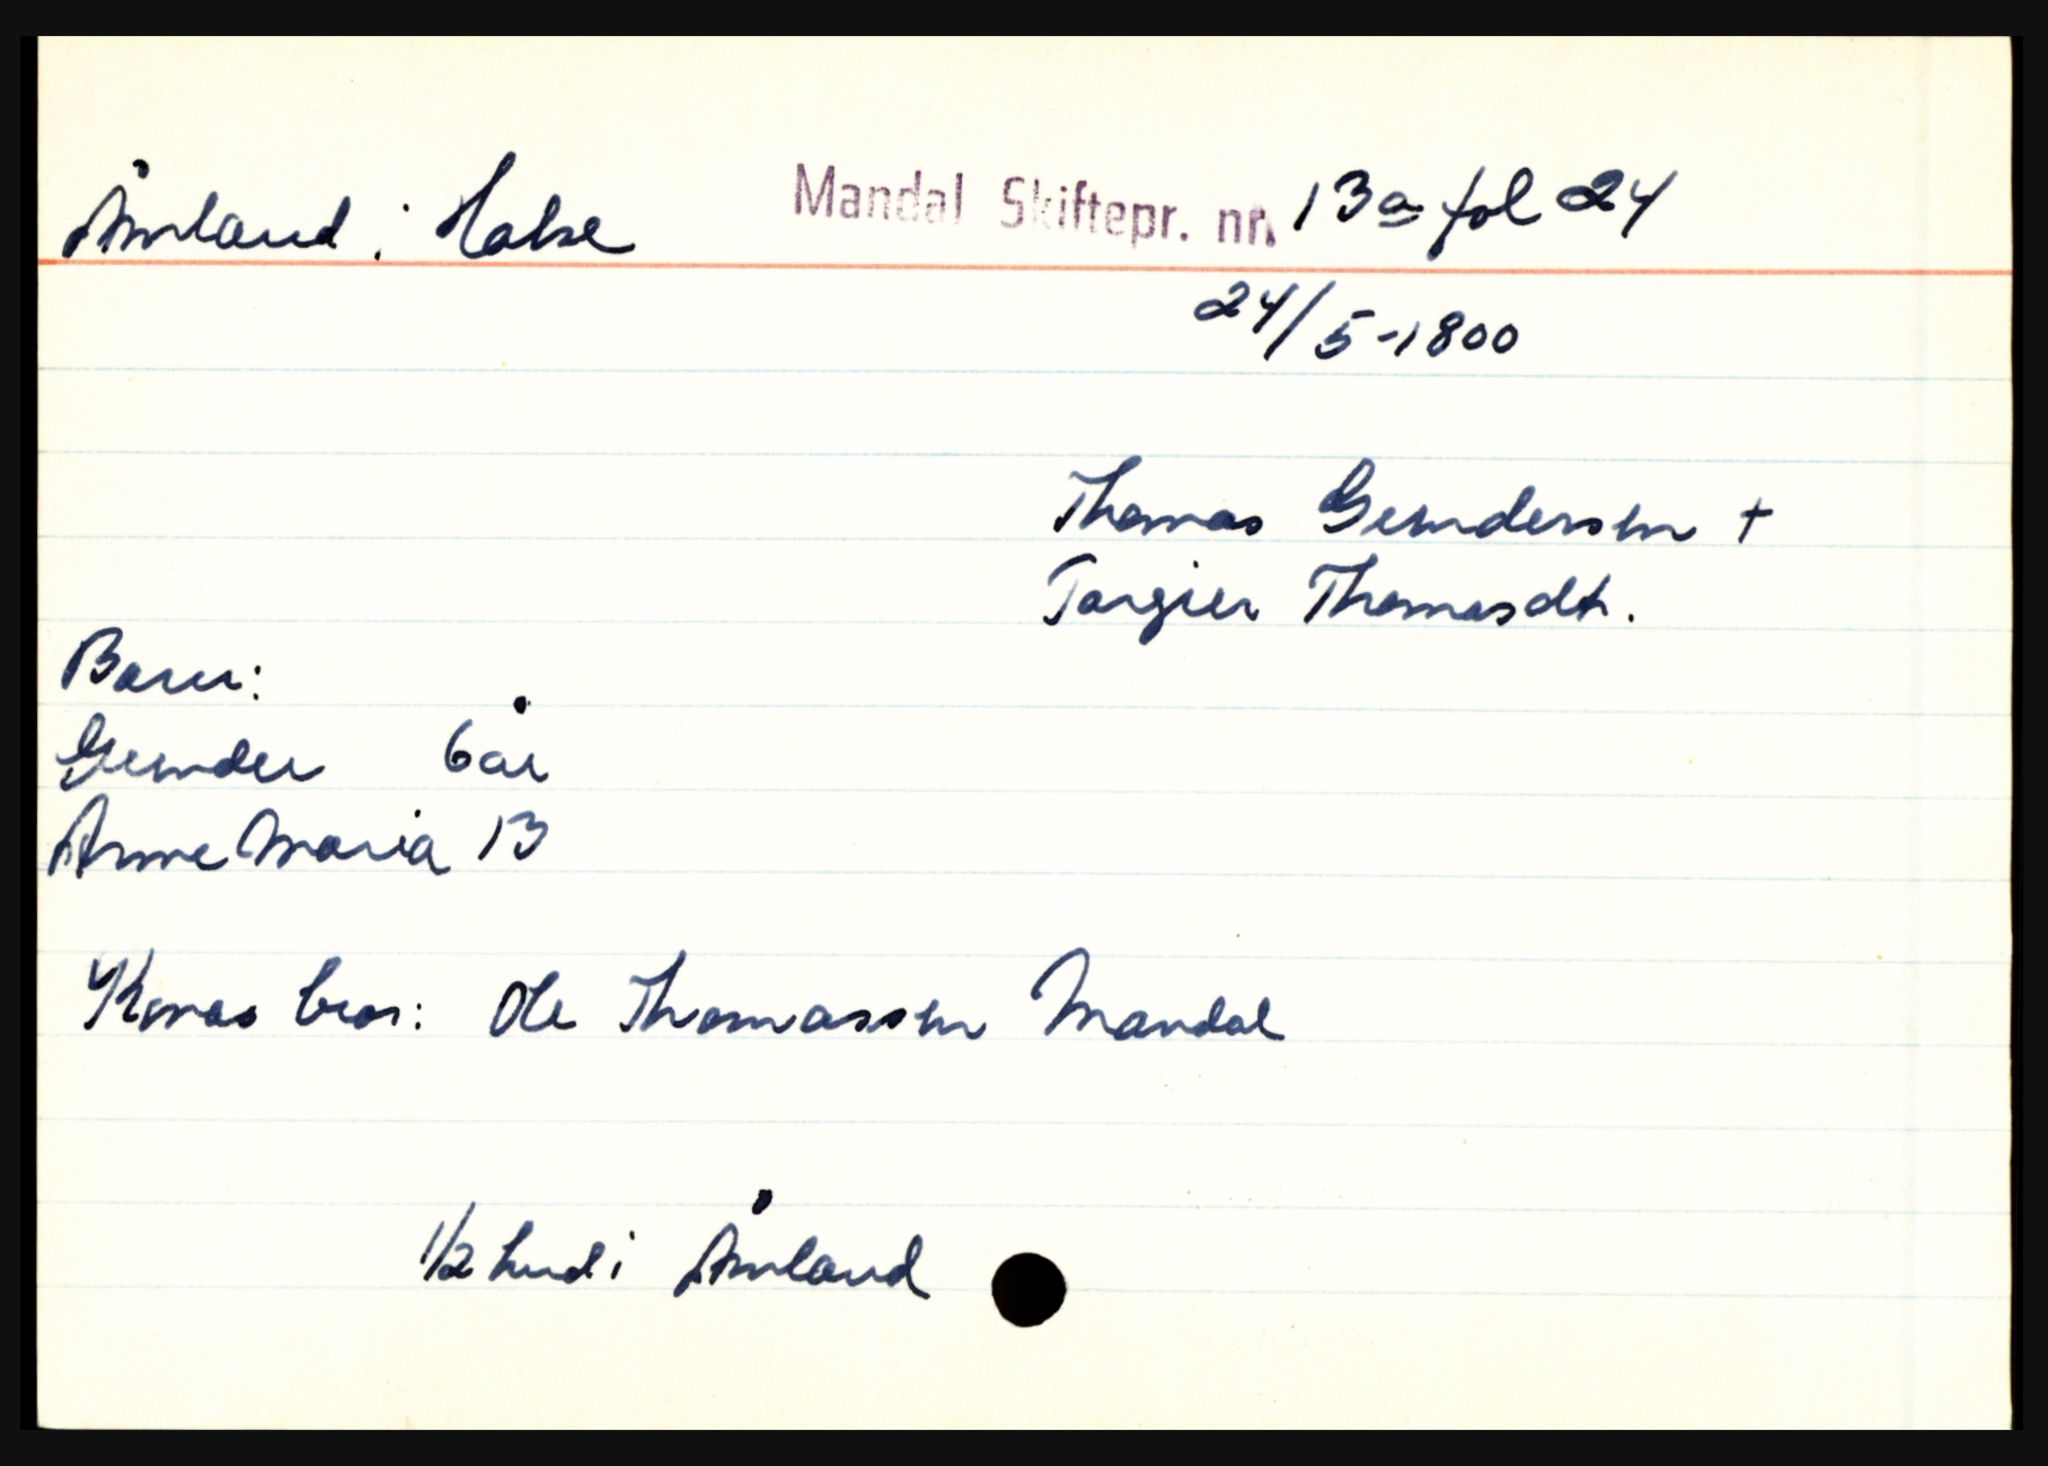 Åmland, Halse Mandal Skiftepr. nr. 13a fol 24
24/5-1800
Thomas Gundersen +
Torgier Thomasdt.
Barn:
Gunder 6 år
Anne Maria 13
Konas bror: Ole Thomassen Mandal
1/2 hud i Åmland